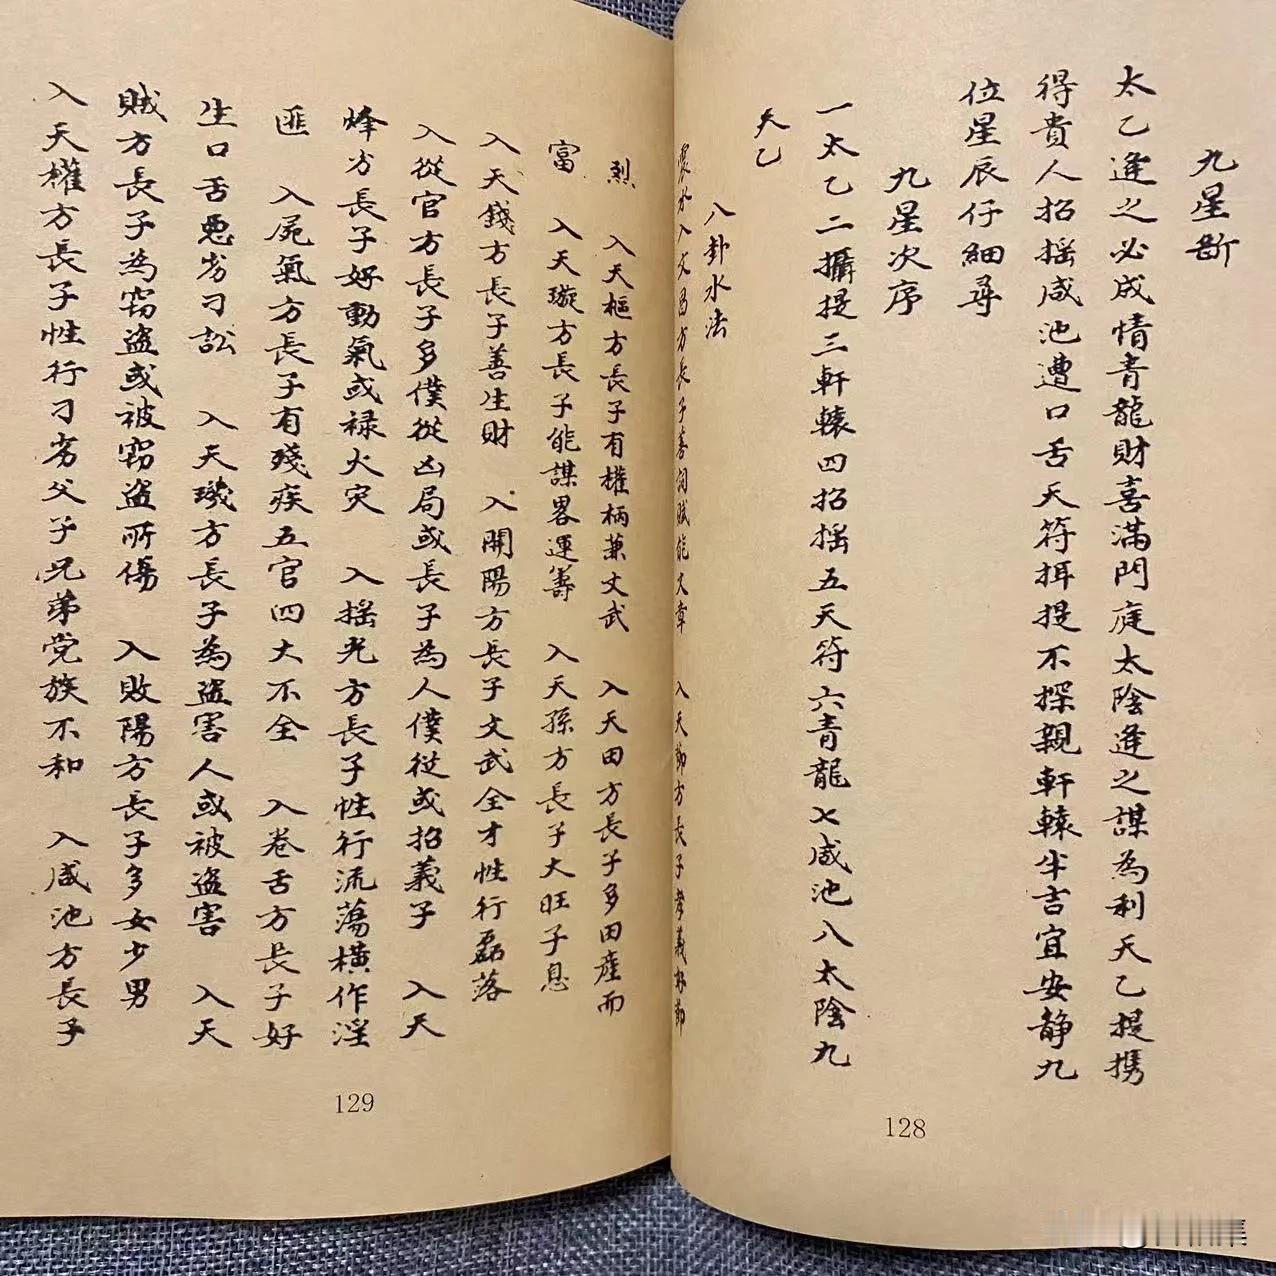 九星斷
太乙逢之必成情青龍財喜滿門庭太陰逢之謀為利天乙提携
得貴人招摇咸池遭口舌天符挕提不探親軒轅半吉宜安静九
位星辰仔細尋
九星次序
一太乙二攝提三軒轅四招摇五天符六青龍七咸池八太陰九
天乙
八卦水法
震水入文昌方長子善詞賦能文章 入天節方長子孝義好節
烈 入天樞方長子有權柄兼文武 入天田方長子多田產而
富 入天璇方長子能謀畧運籌 入天孫方長子大旺子息
入天錢方長子善生財 入開陽方長子文武全才性行磊落
入從官方長子多僕從凶局或長子為人僕從或招義子 入天
烽方長子好動氣或禄火灾 入摇光方長子性行流蕩橫作淫
匪 入屍氣方長子有殘疾五官四大不全 入卷舌方長子好
生口舌惡劣刁訟 入天璣方長子為盜害人或被盜害 入天
賊方長子為窃盜或被窃盜所傷 入敗陽方長子多女少男
入天權方長子性行刁劣父子兄弟党族不和 入咸池方長子
128
129